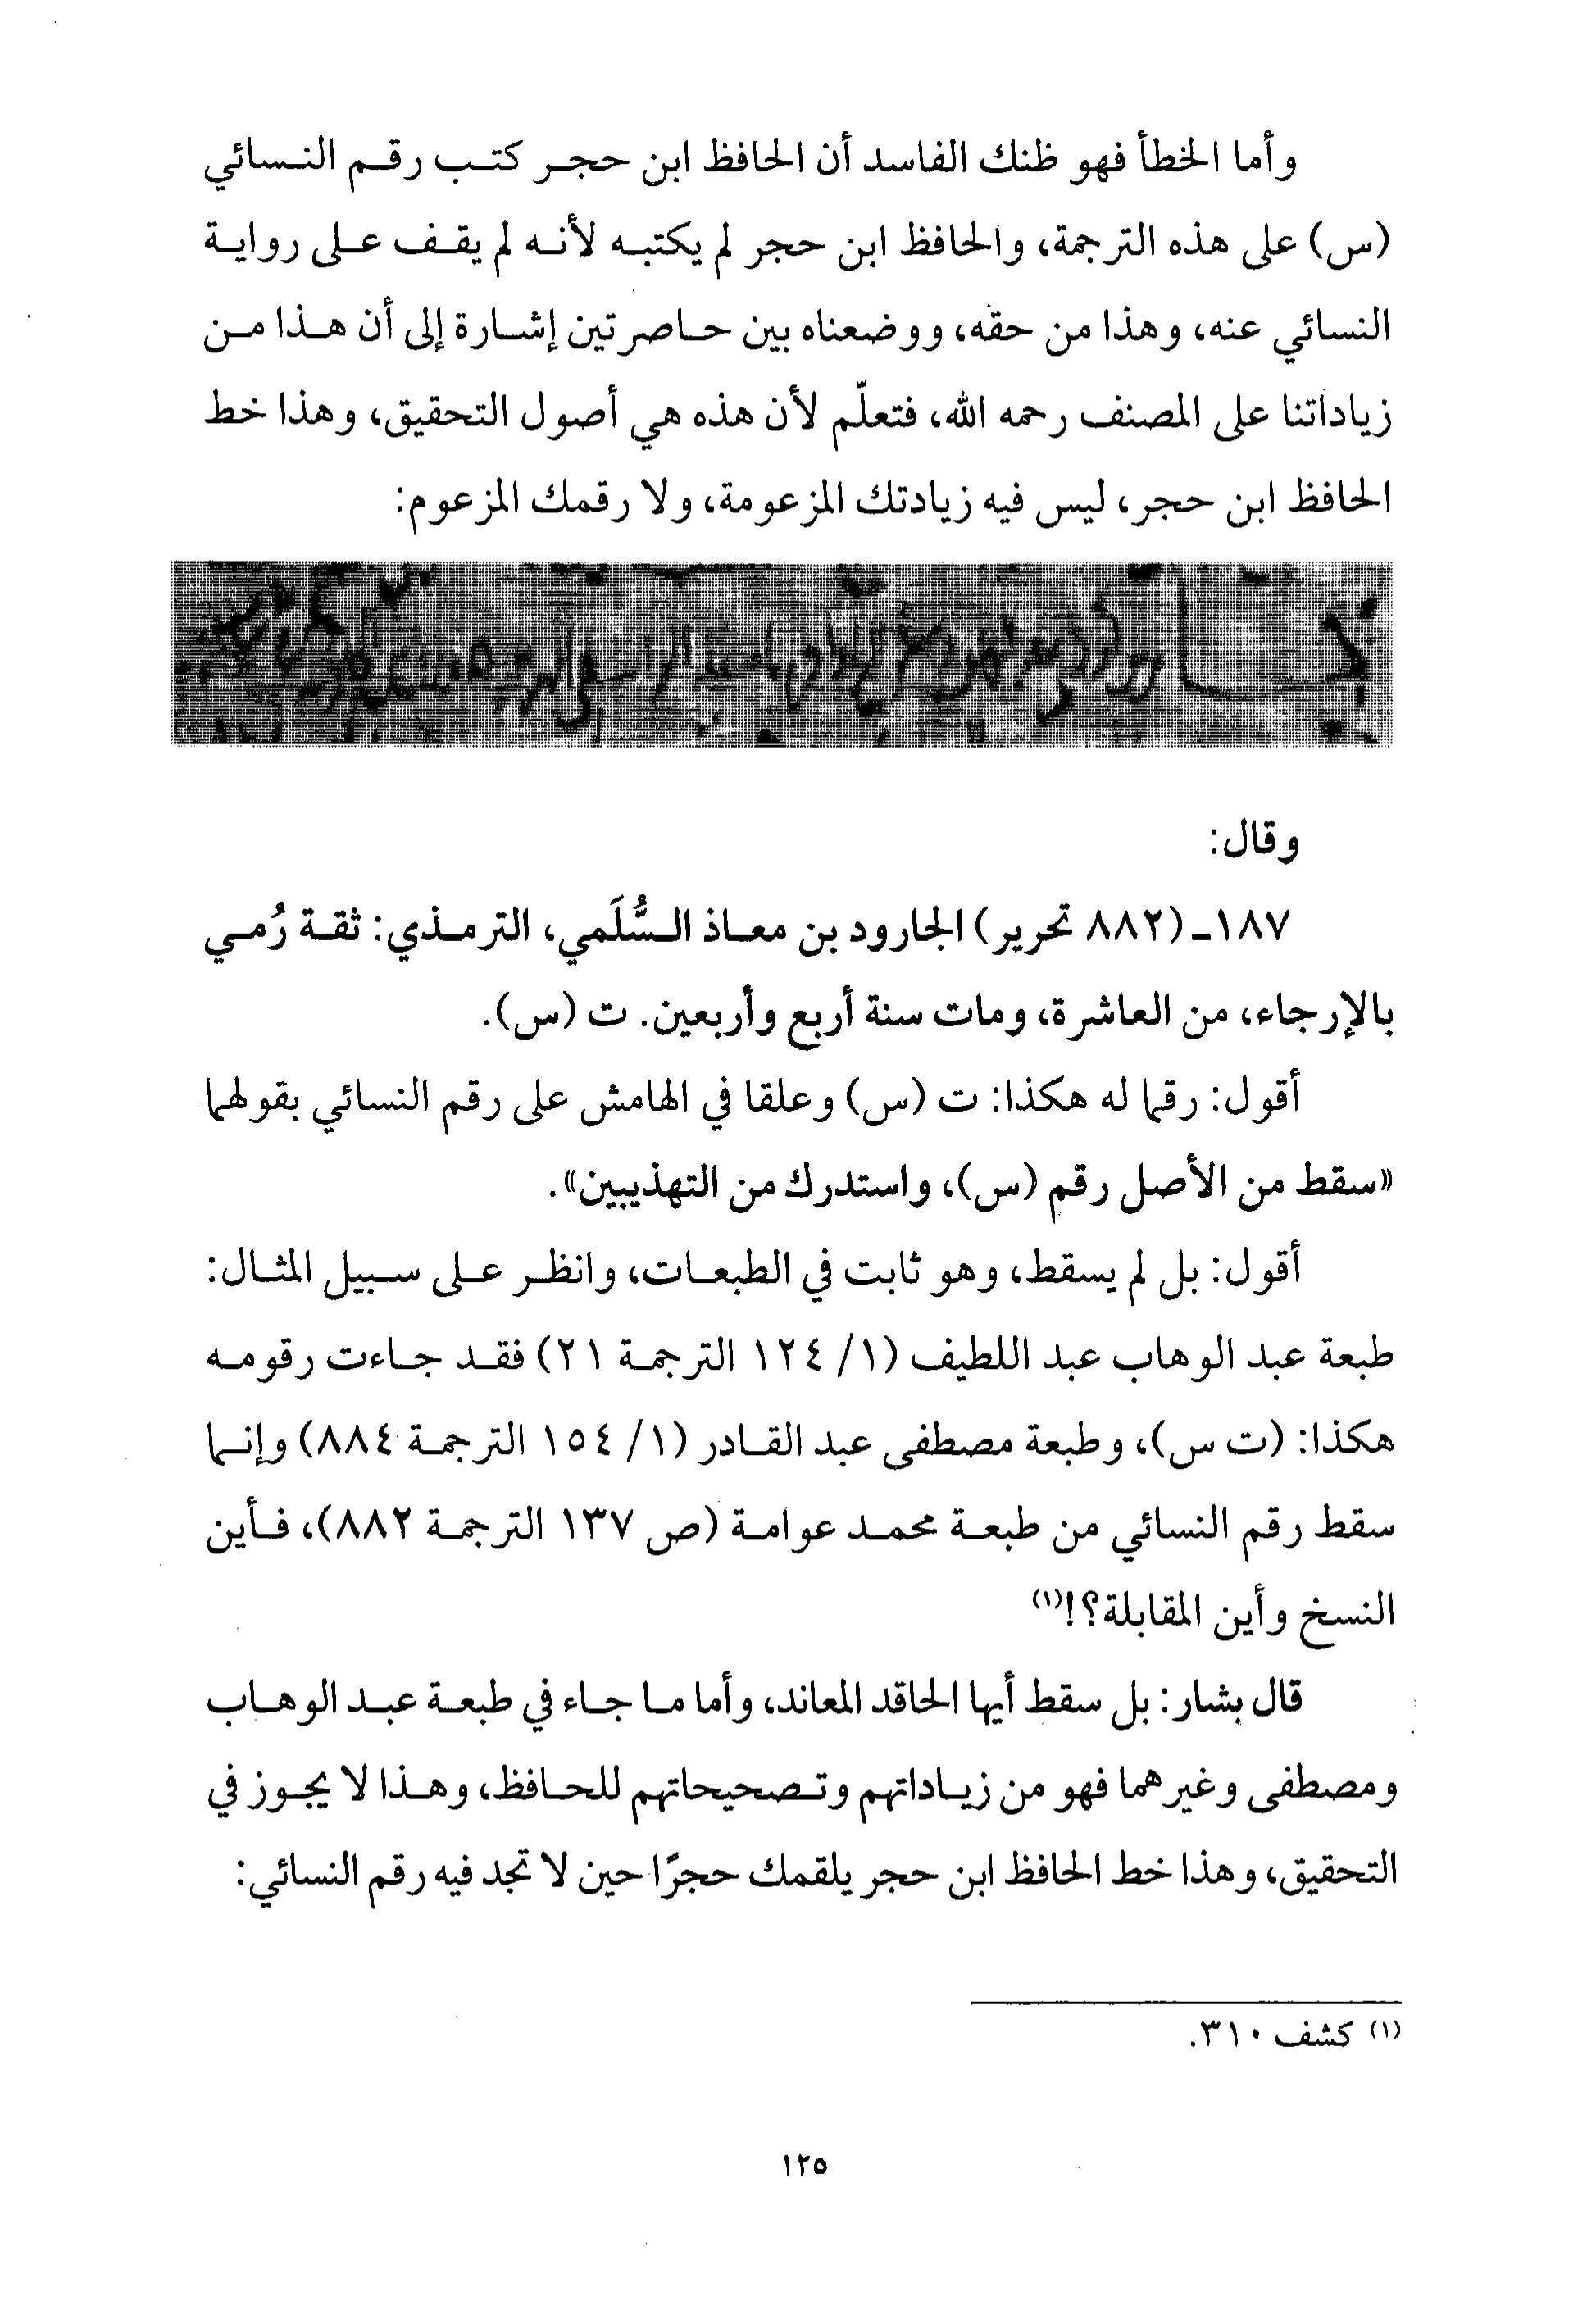 وأما الخطأ فهو ظنك الفاسد أن الحافظ ابن حجر كتب رقم النسائي
(س) على هذه الترجمة، والحافظ ابن حجر لم يكتبه لأنه لم يقف على رواية
النسائي عنه، وهذا من حقه، ووضعناه بين حاصرتين إشارة إلى أن هذا من
زياداتنا على المصنف رحمه الله، فتعلّم لأن هذه هي أصول التحقيق، وهذا خط
الحافظ ابن حجر، ليس فيه زيادتك المزعومة، ولا رقمك المزعوم:
وقال:
١٨٧ـ (٨٨٢ تحرير) الجارود بن معاذ السُّلَمي، الترمذي: ثقة رُمي
بالإرجاء، من العاشرة، ومات سنة أربع وأربعين. ت (س).
أقول: رقما له هكذا: ت (س) وعلقا في الهامش على رقم النسائي بقولهما
«سقط من الأصل رقم (س)، واستدرك من التهذيبين».
أقول: بل لم يسقط، وهو ثابت في الطبعات، وانظر على سبيل المثال:
طبعة عبد الوهاب عبد اللطيف (١/ ١٢٤ الترجمة ٢١) فقد جاءت رقومه
هكذا: (ت س)، وطبعة مصطفى عبد القادر (١/ ١٥٤ الترجمة ٨٨٤) وإنما
سقط رقم النسائي من طبعة محمد عوامة (ص ١٣٧ الترجمة ٨٨٢)، فأين
النسخ وأين المقابلة؟!(١)
قال بشار: بل سقط أيها الحاقد المعاند، وأما ما جاء في طبعة عبد الوهاب
ومصطفى وغيرهما فهو من زياداتهم وتصحيحاتهم للحافظ، وهذا لا يجوز في
التحقيق، وهذا خط الحافظ ابن حجر يلقمك حجرًا حين لا تجد فيه رقم النسائي:
(١) كشف ٣١٠.
١٢٥